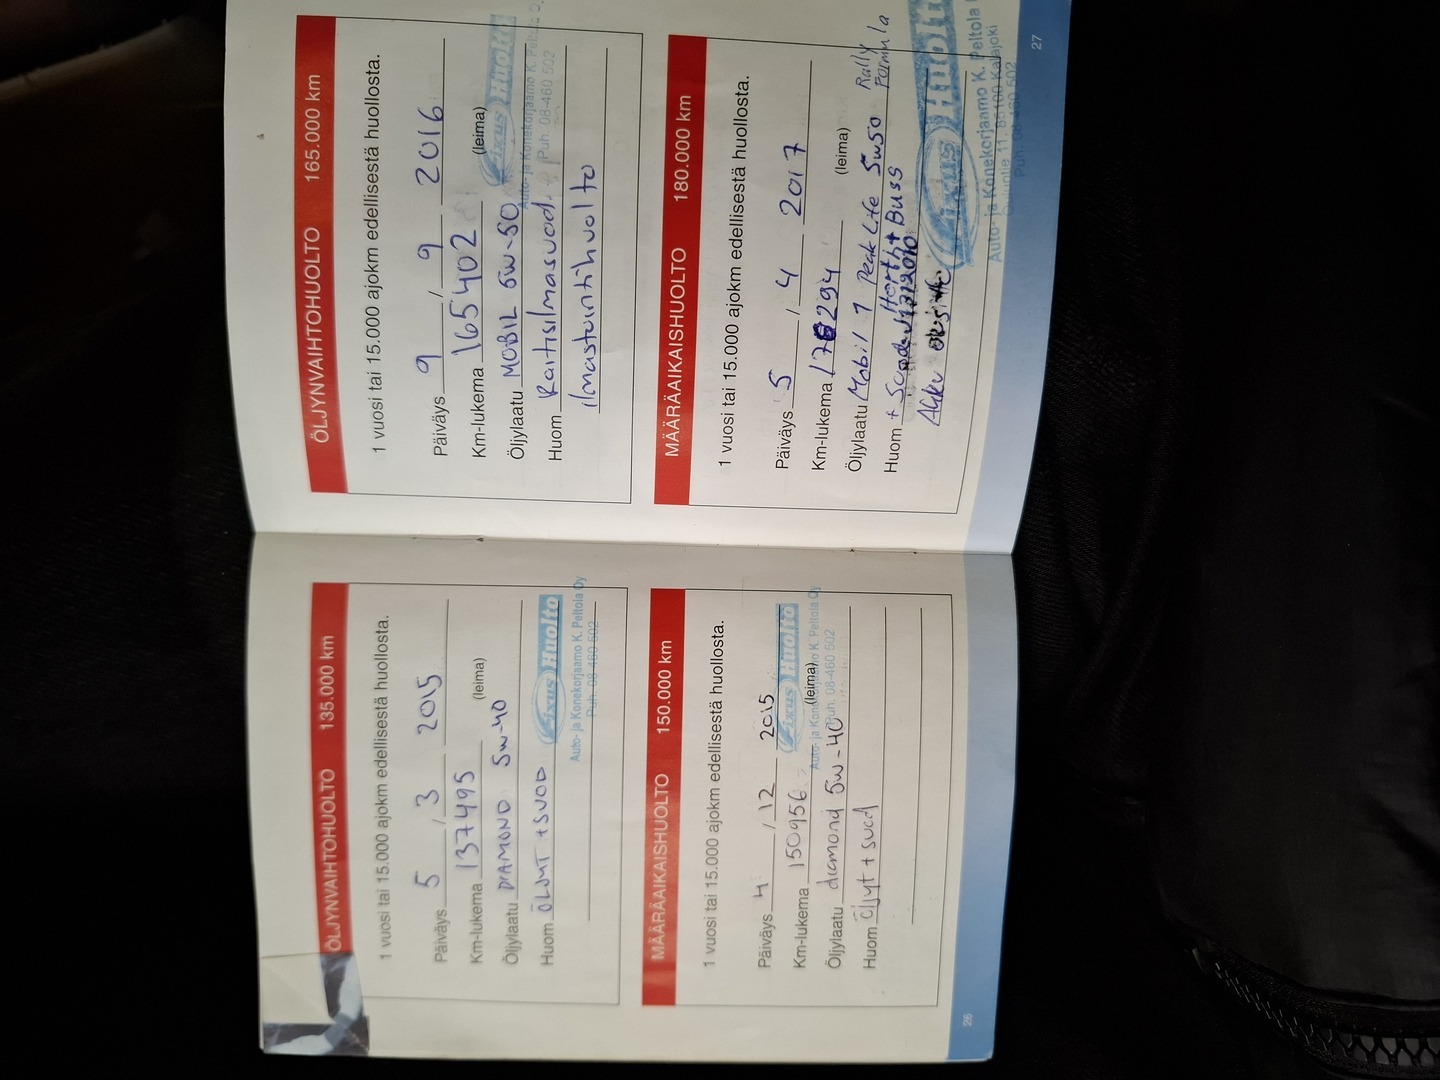 ÖLJYNVAIHTOHUOLTO 135.000 km
1 vuosi tai 15.000 ajokm edellisestä huollosta.
Päiväys 5 / 3 2015
Km-lukema 137495 (leima)
Öljylaatu DIAMOND 5W-40
Huom ÖLJYT + SUOD
Fixus Huolto
Auto- ja Konekorjaamo K. Peltola Oy
Puh. 08-460 502
MÄÄRÄAIKAISHUOLTO 150.000 km
1 vuosi tai 15.000 ajokm edellisestä huollosta.
Päiväys 4 / 12 2015
Km-lukema 150956 (leima)
Öljylaatu diamond 5w-40
Huom Öljyt + suod
Fixus Huolto
Auto- ja Konekorjaamo K. Peltola Oy
Puh. 08-460 502
26
ÖLJYNVAIHTOHUOLTO 165.000 km
1 vuosi tai 15.000 ajokm edellisestä huollosta.
Päiväys 9 / 9 2016
Km-lukema 165402 (leima)
Öljylaatu MOBIL 5W-50
Huom Raitisilmasuod.
ilmastointihuolto
Fixus Huolto
Auto- ja Konekorjaamo K. Peltola O
Puh. 08-460 502
MÄÄRÄAIKAISHUOLTO 180.000 km
1 vuosi tai 15.000 ajokm edellisestä huollosta.
Päiväys 5 / 4 2017
Km-lukema (leima)
Öljylaatu Mobil 1 Peak Life 5w50 Rally Formula
Huom +
Akku
Fixus Huolto
Auto- ja Konekorjaamo K. Peltola
85100 Kalajoki
Puh. 08-460 502
27